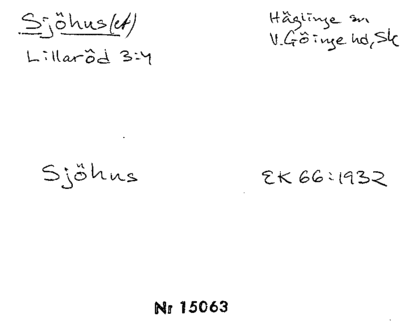 Sjöhus(et)
Lillaröd 3:4
Häglinge sn
V.Göinge hd, Sk
Sjöhus
EK 66:1932
Nr 15063